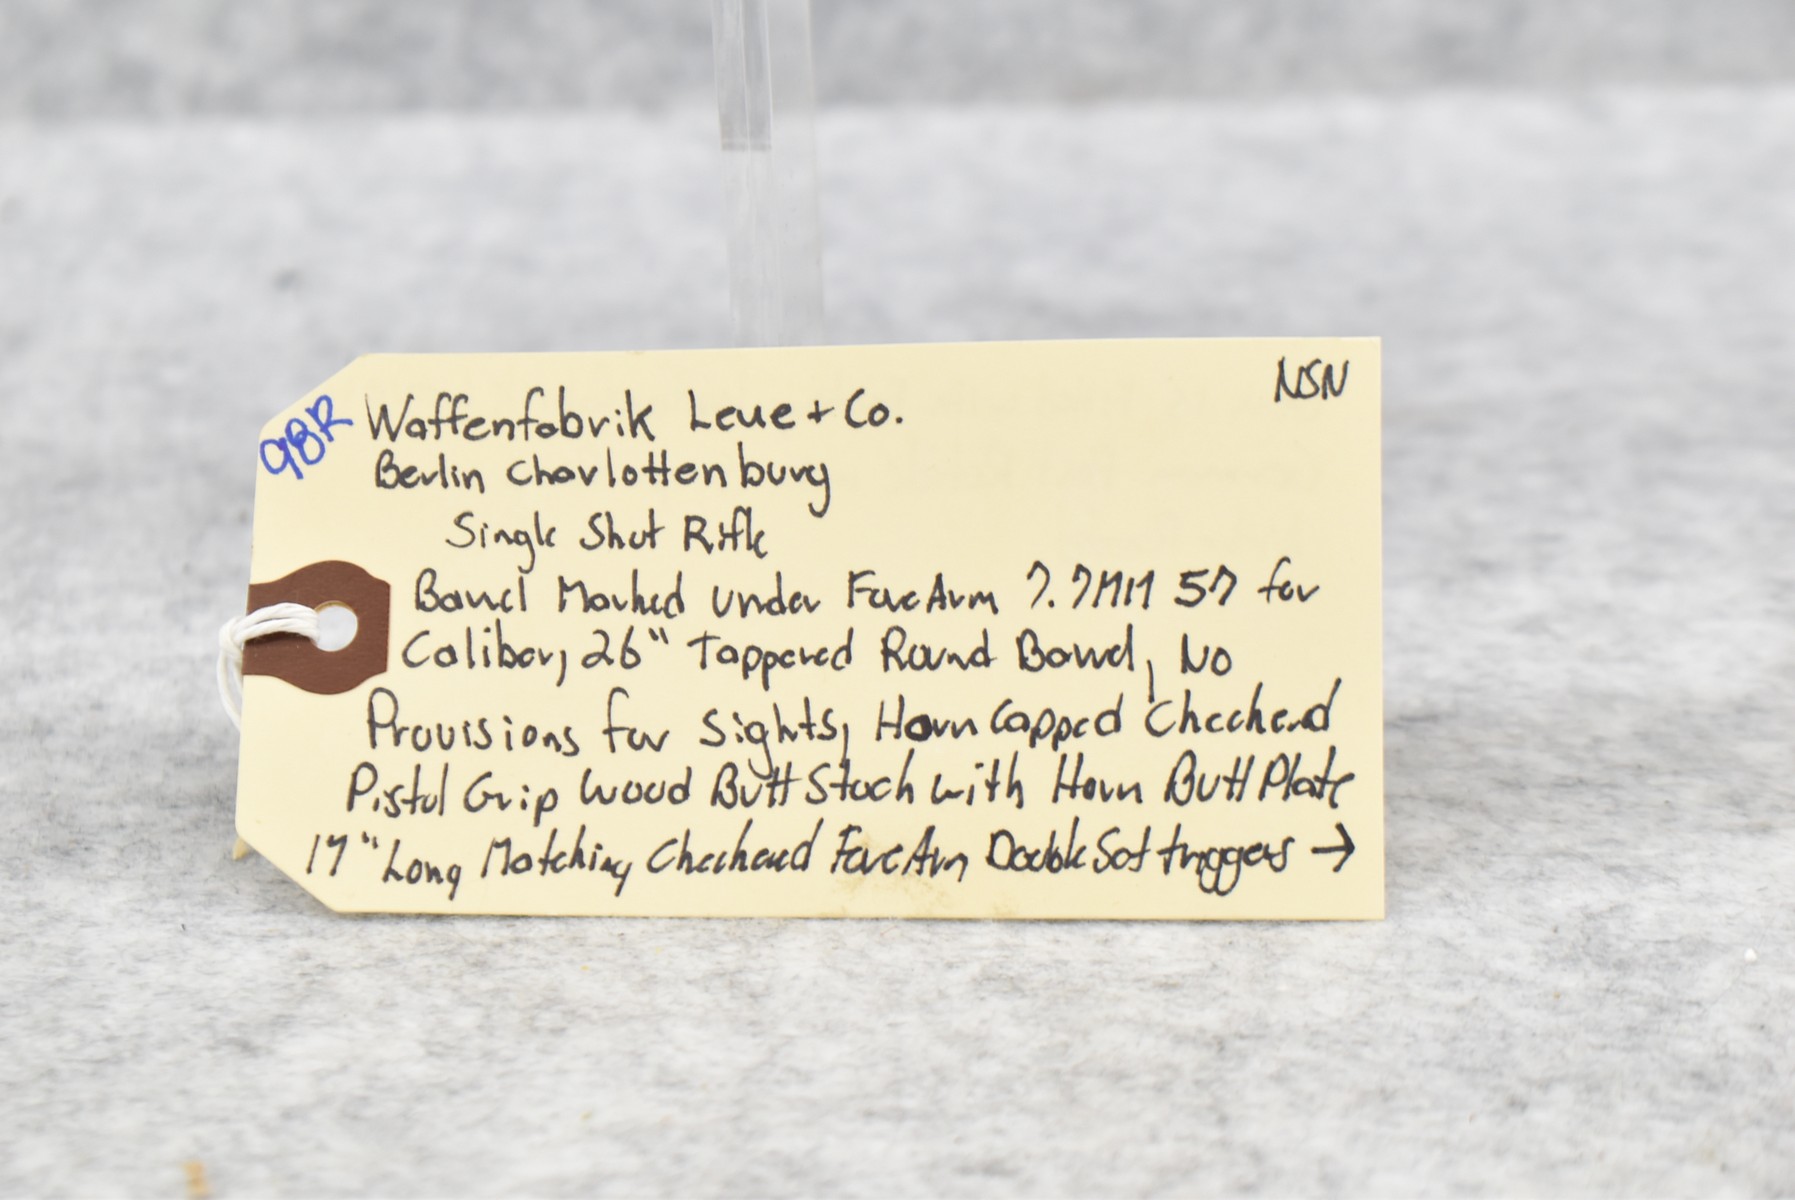 98R
NSN
Waffenfabrik Leue + Co.
Berlin Charlottenburg
Single Shot Rifle
Barrel Marked under ForeArm 7.7MM 57 for
Caliber, 26" Tappered Round Barrel, No
Provisions for Sights, Horn Capped Checkered
Pistol Grip Wood Butt Stock with Horn Butt Plate
17" Long Matching Checkered ForeArm Double Set triggers →